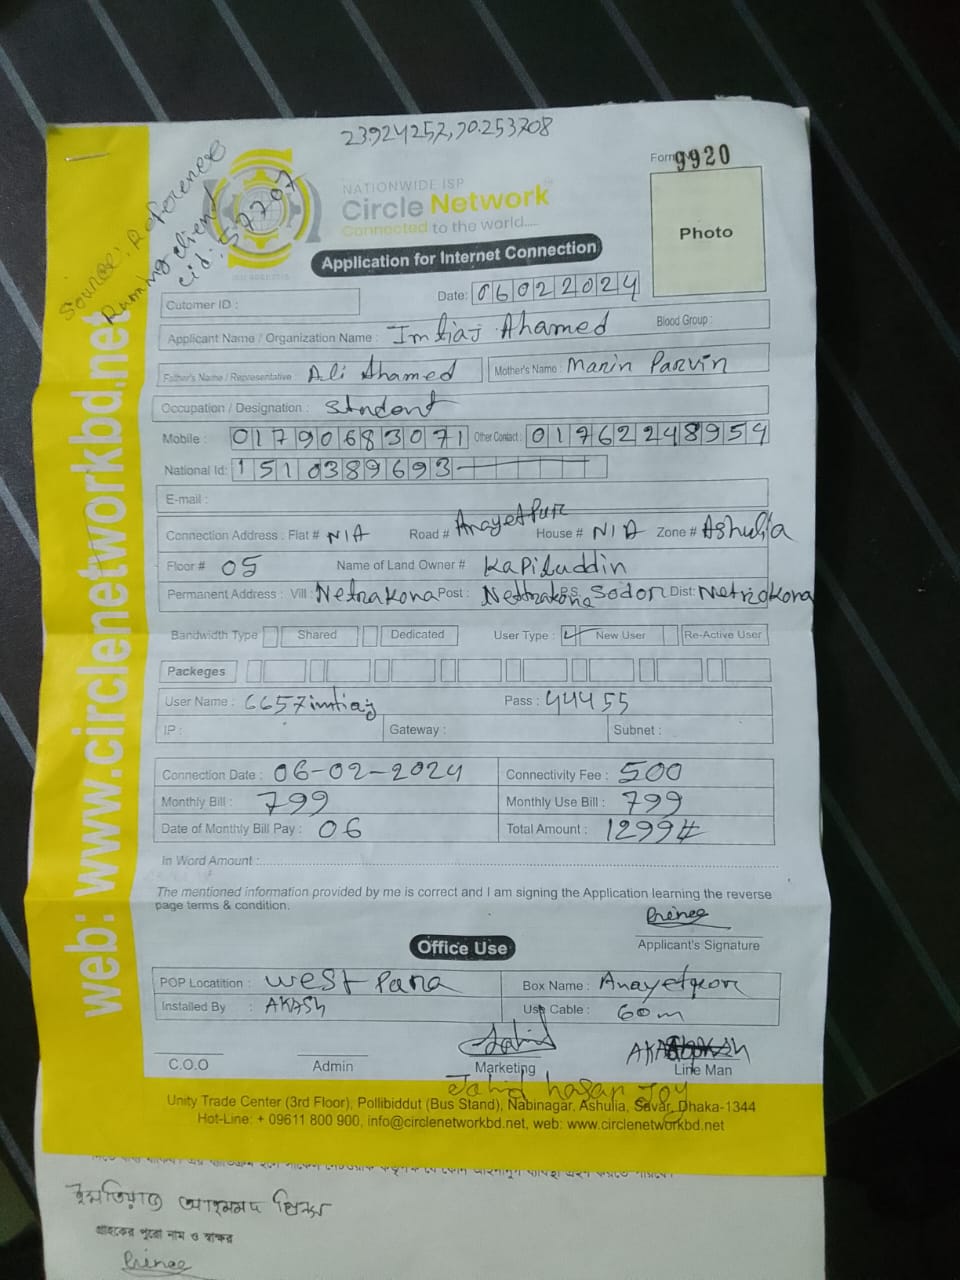 23.924252,90.253708
Source: Reference
Running client
cid: 52707
Form 9920
NATIONWIDE ISP
Circle Network
Connected to the world.....
Photo
Application for Internet Connection
Cutomer ID : Date: 06022024
Applicant Name / Organization Name : Imtiaj Ahamed Blood Group :
Father's Name / Representative Ali Ahamed Mother's Name : Manin Parvin
Occupation / Designation : Stndent
Mobile : 01790683071 Other Contact : 01762248954
National Id: 1510389693
E-mail :
Connection Address : Flat # N/A Road # Anayetpur House # N/A Zone # Ashulia
Floor # 05 Name of Land Owner # Kapiluddin
Permanent Address : Vill : Netrakona Post : Netrakona P.S. Sodor Dist: Netrokona
Bandwidth Type Shared Dedicated User Type : New User Re-Active User
Packeges
User Name : 6657imtiaj Pass : 44455
IP : Gateway : Subnet :
Connection Date : 06-02-2024 Connectivity Fee : 500
Monthly Bill : 799 Monthly Use Bill : 799
Date of Monthly Bill Pay : 06 Total Amount : 1299#
In Word Amount :
The mentioned information provided by me is correct and I am signing the Application learning the reverse
page terms & condition.
Prince
Applicant's Signature
Office Use
POP Locatition : West Para Box Name : Anayetpur
Installed By : AKASh Use Cable : 60m
Jahid AKASh
C.O.O Admin Marketing Line Man
Jahid hasan Joy
Unity Trade Center (3rd Floor), Pollibiddut (Bus Stand), Nabinagar, Ashulia, Savar, Dhaka-1344
Hot-Line: + 09611 800 900, info@circlenetworkbd.net, web: www.circlenetworkbd.net
web: www.circlenetworkbd.net
ইমতিয়াজ আহমমদ প্রিন্স
গ্রাহকের পুরো নাম ও স্বাক্ষর
Prince